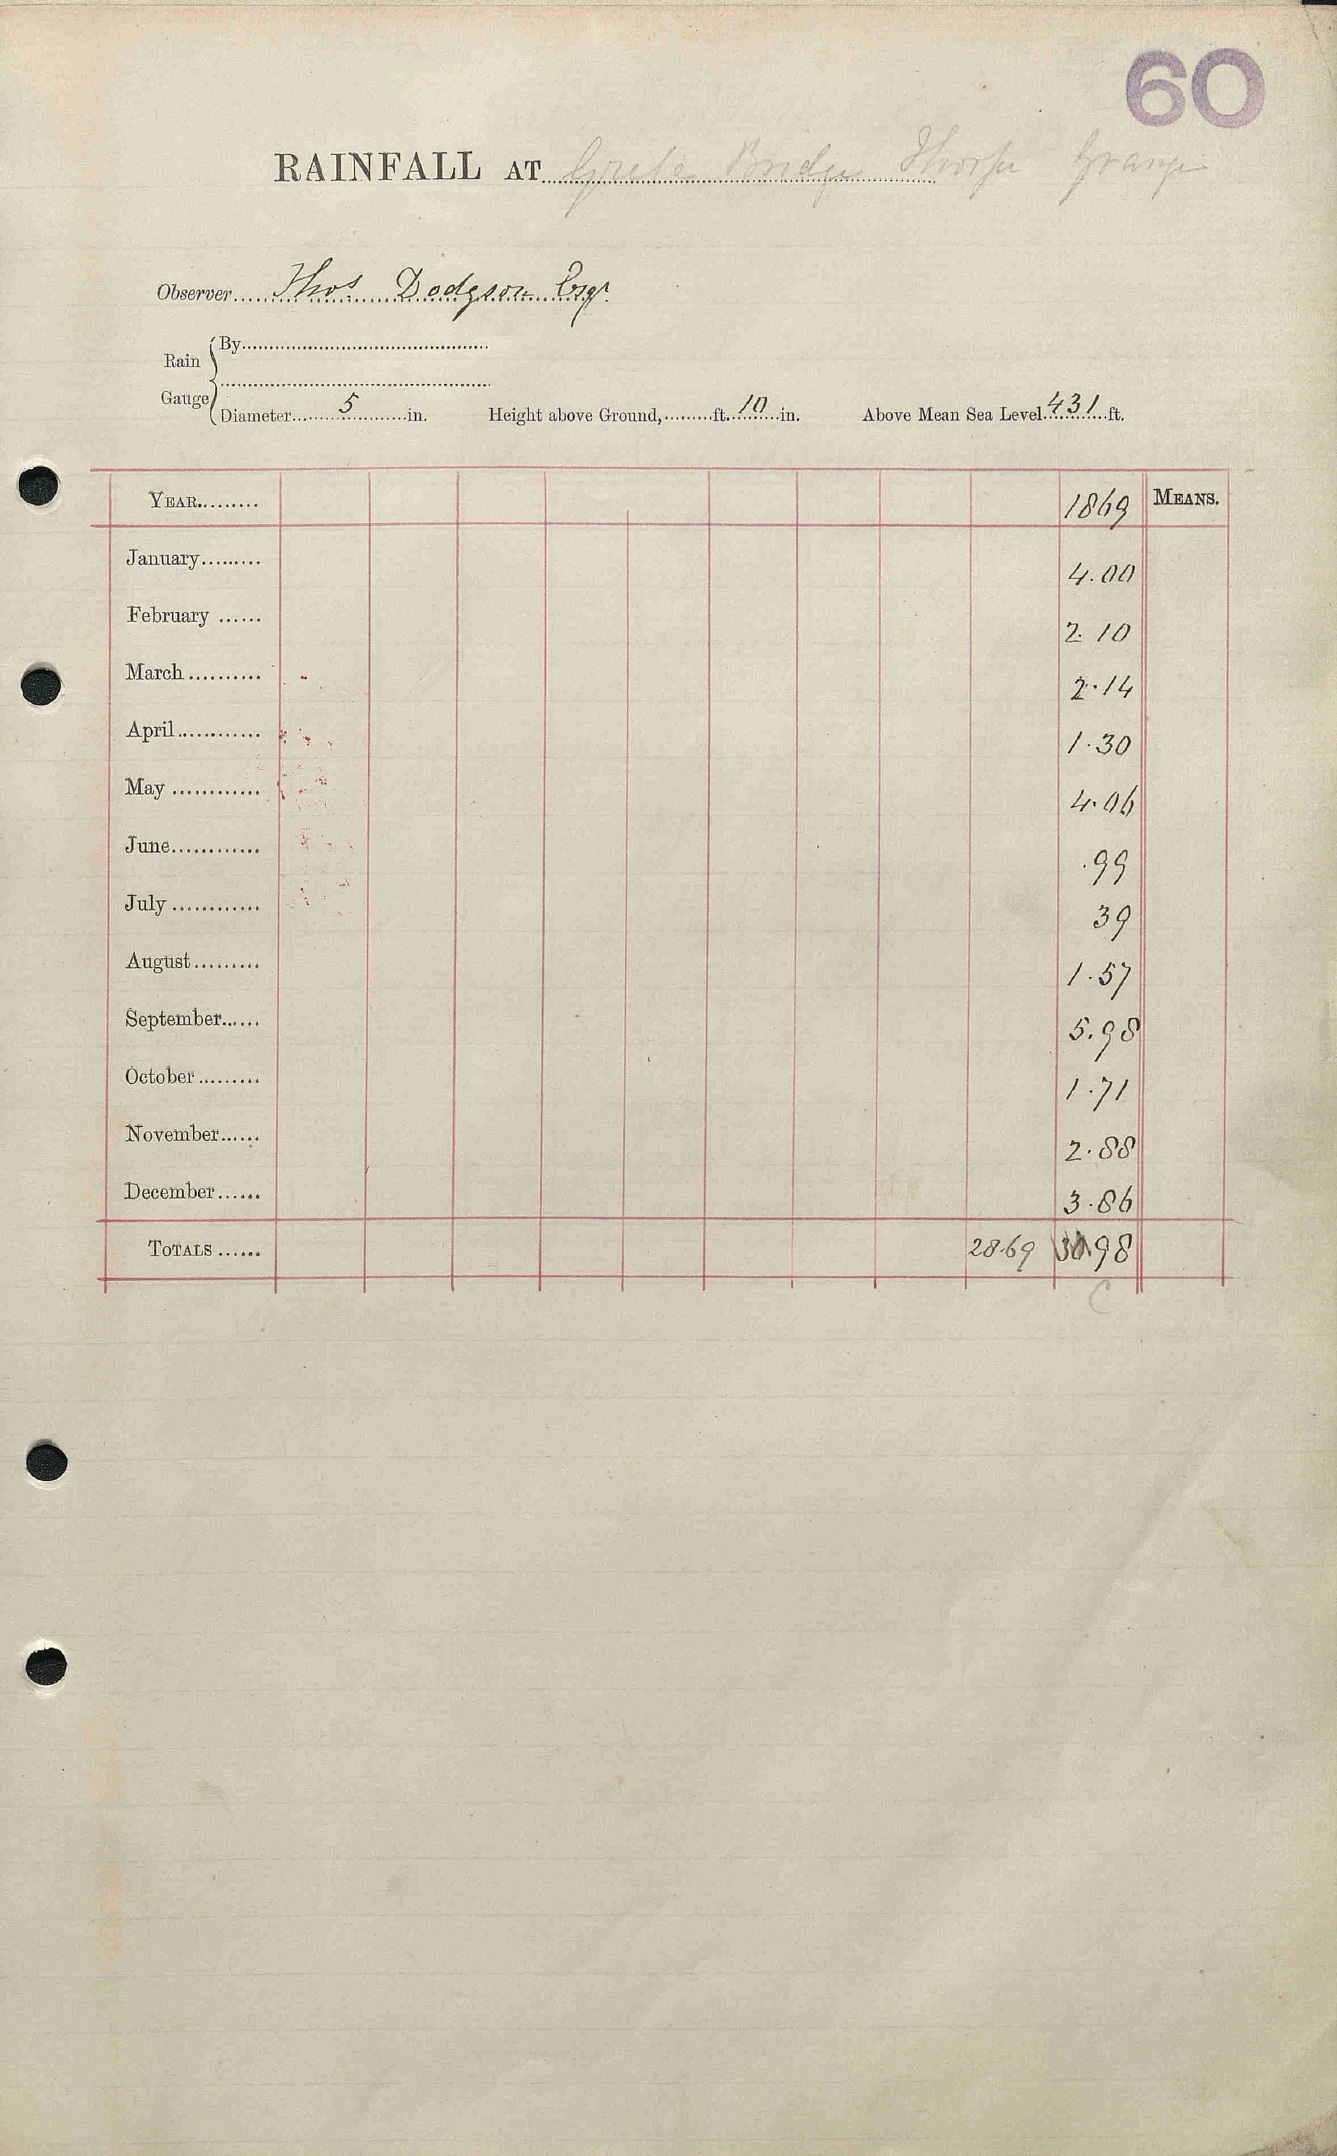 60
RAINFALL AT Greta Bridge Thorpe Grange
Observer Thos Dodgson Esqr
Rain Gauge
By
Diameter 5 in. Height above Ground, ft. 10 in. Above Mean Sea Level 431 ft.
YEAR 1869 MEANS.
January 4.00
February 2.10
March 2.14
April 1.30
May 4.06
June .99
July 39
August 1.57
September 5.98
October 1.71
November 2.88
December 3.86
TOTALS 28.69 30.98
C